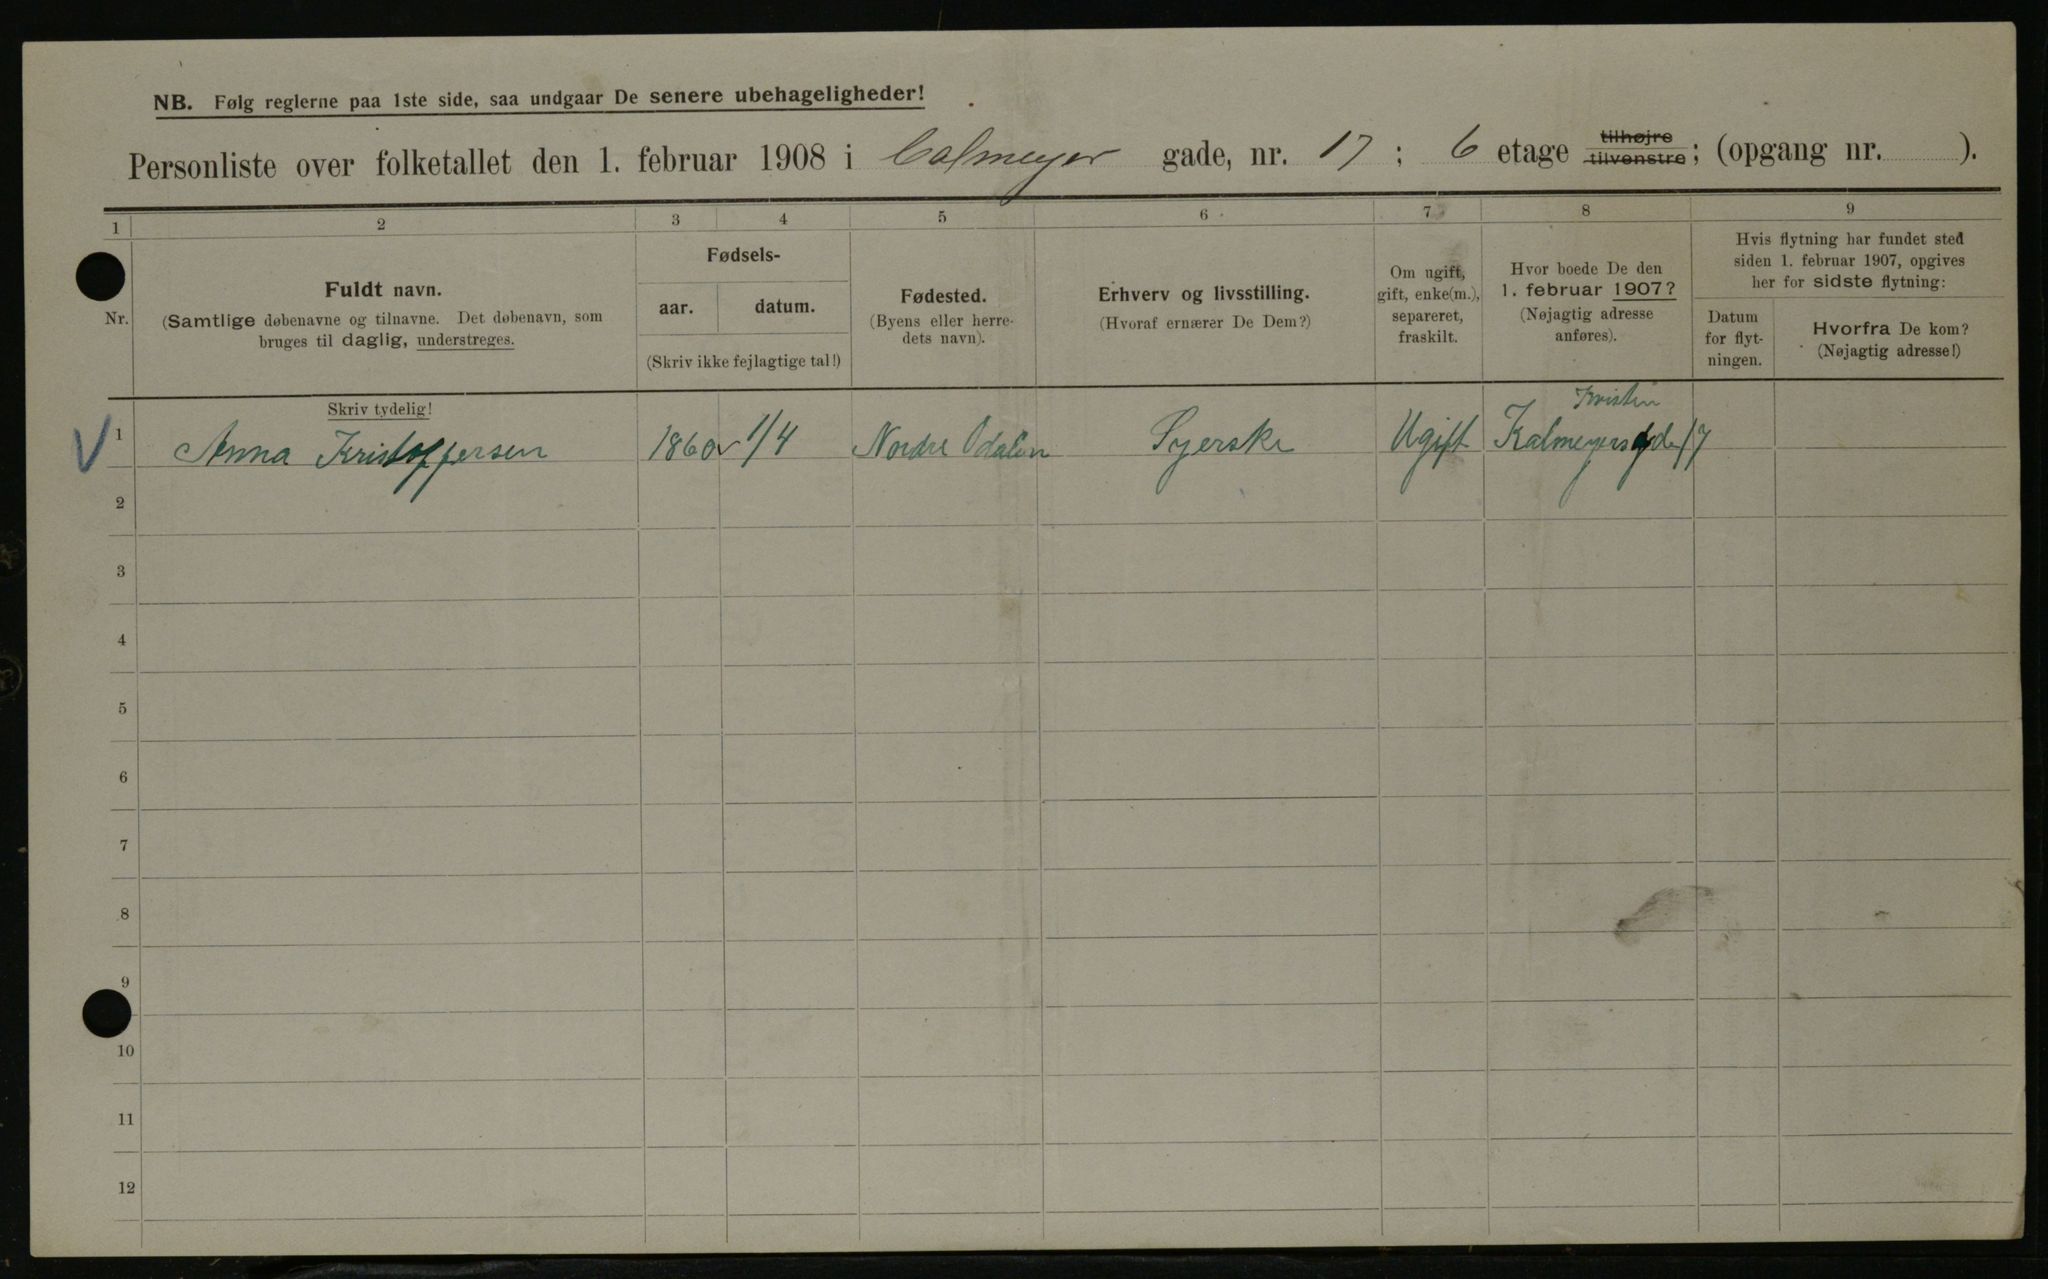 NB. Følg reglerne paa 1ste side, saa undgaar De senere ubehageligheder!
Personliste over folketallet den 1. februar 1908 i Calmeyer gade, nr. 17 ; 6 etage tilhøjre tilvenstre; (opgang nr. ).
1 2 3 4 5 6 7 8 9
Nr.
Fuldt navn.
(Samtlige døbenavne og tilnavne. Det døbenavn, som
bruges til daglig, understreges.
Fødsels-
aar. datum.
(Skriv ikke fejlagtige tal!)
Fødested.
(Byens eller herre-
dets navn).
Erhverv og livsstilling.
(Hvoraf ernærer De Dem?)
Om ugift,
gift, enke(m.),
separeret,
fraskilt.
Hvor boede De den
1. februar 1907?
(Nøjagtig adresse
anføres).
Hvis flytning har fundet sted
siden 1. februar 1907, opgives
her for sidste flytning:
Datum
for flyt-
ningen.
Hvorfra De kom?
(Nøjagtig adresse!)
Skriv tydelig!
Kristin
1 Anna Kristoffersen 1860 1/4 Nordre Odalen Syerske Ugift Kalmeyersgde 17
2
3
4
5
6
7
8
9
10
11
12